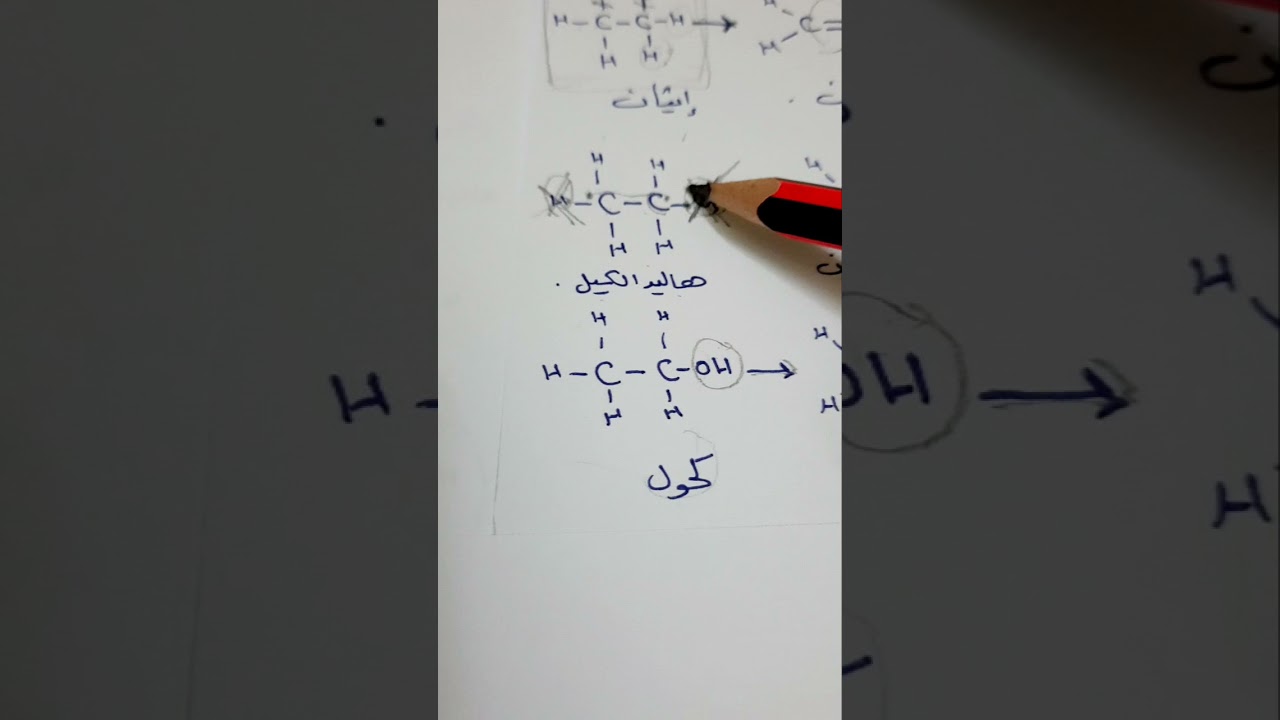 H - C - C - H →
H H
H C =
H
إيثان
ن .
H H H
H - C - C -
H H
هاليد الكيل .
ن
H H H
H - C - C - OH →
H H H
كحول